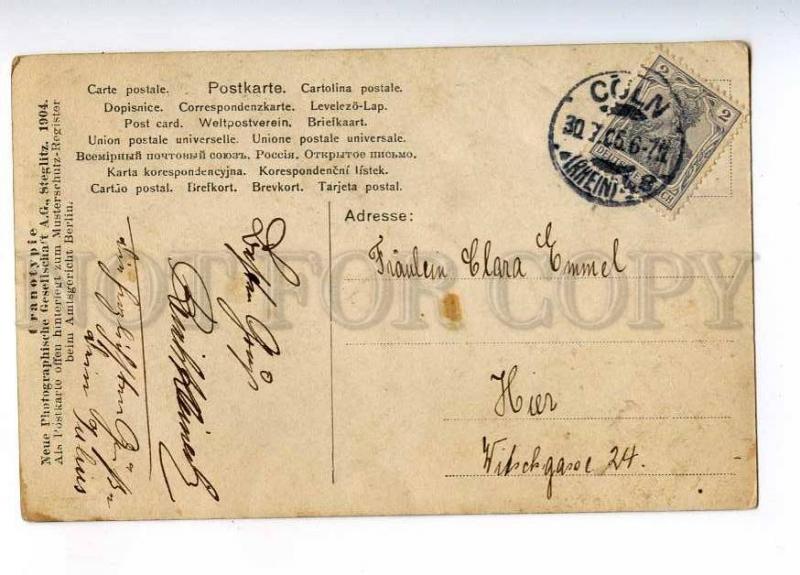 Carte postale. Postkarte. Cartolina postale.
Dopisnice. Correspondenzkarte. Levelező-Lap.
Post card. Weltpostverein. Briefkaart.
Union postale universelle. Unione postale universale.
Всемірный почтовый союзъ. Россія. Открытое письмо.
Karta korespondencyjna. Korespondenční lístek.
Cartão postal. Brefkort. Brevkort. Tarjeta postal.
Uranotypie
Neue Photographische Gesellschaft A.G., Steglitz. 1904.
Als Postkarte offen hinterlegt zum Musterschutz-Register
beim Amtsgericht Berlin.
CÖLN
30.7.05.6-7
(RHEIN)
2
2
DEUTSCHES
Adresse:
Fräulein Clara Emmel
Hier
Witschgasse 24.
Gruß
die herzlichsten Grüße
dein Julius
NOT FOR COPY